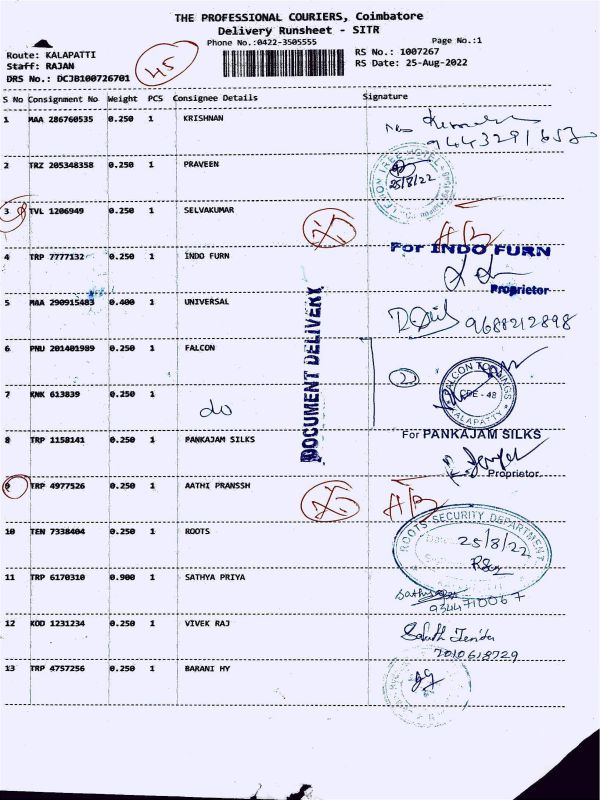 THE PROFESSIONAL COURIERS, Coimbatore
Delivery Runsheet - SITR
Phone No.:0422-3505555 Page No.:1
Route: KALAPATTI RS No.: 1007267
Staff: RAJAN RS Date: 25-Aug-2022
DRS No.: DCJB100726701
45
S No Consignment No Weight PCS Consignee Details Signature
1 MAA 286760535 0.250 1 KRISHNAN
2 TRZ 205348358 0.250 1 PRAVEEN
LEMON TREE HOTEL
25/8/22
3 TVL 1206949 0.250 1 SELVAKUMAR
4 TRP 7777132 0.250 1 INDO FURN
For INDO FURN
Proprietor
5 MAA 290915483 0.400 1 UNIVERSAL
9688212898
DOCUMENT DELIVERY
6 PNU 201401989 0.250 1 FALCON
FALCON TOOLINGS
CBE - 48
KALAPATTY
7 KNK 613839 0.250 1
do
8 TRP 1158141 0.250 1 PANKAJAM SILKS
For PANKAJAM SILKS
Proprietor
9 TRP 4977526 0.250 1 AATHI PRANSSH
10 TEN 7338404 0.250 1 ROOTS
ROOTS SECURITY DEPARTMENT
Date 25/8/22
11 TRP 6170310 0.900 1 SATHYA PRIYA
9344710067
12 KOD 1231234 0.250 1 VIVEK RAJ
7010618729
13 TRP 4757256 0.250 1 BARANI HY